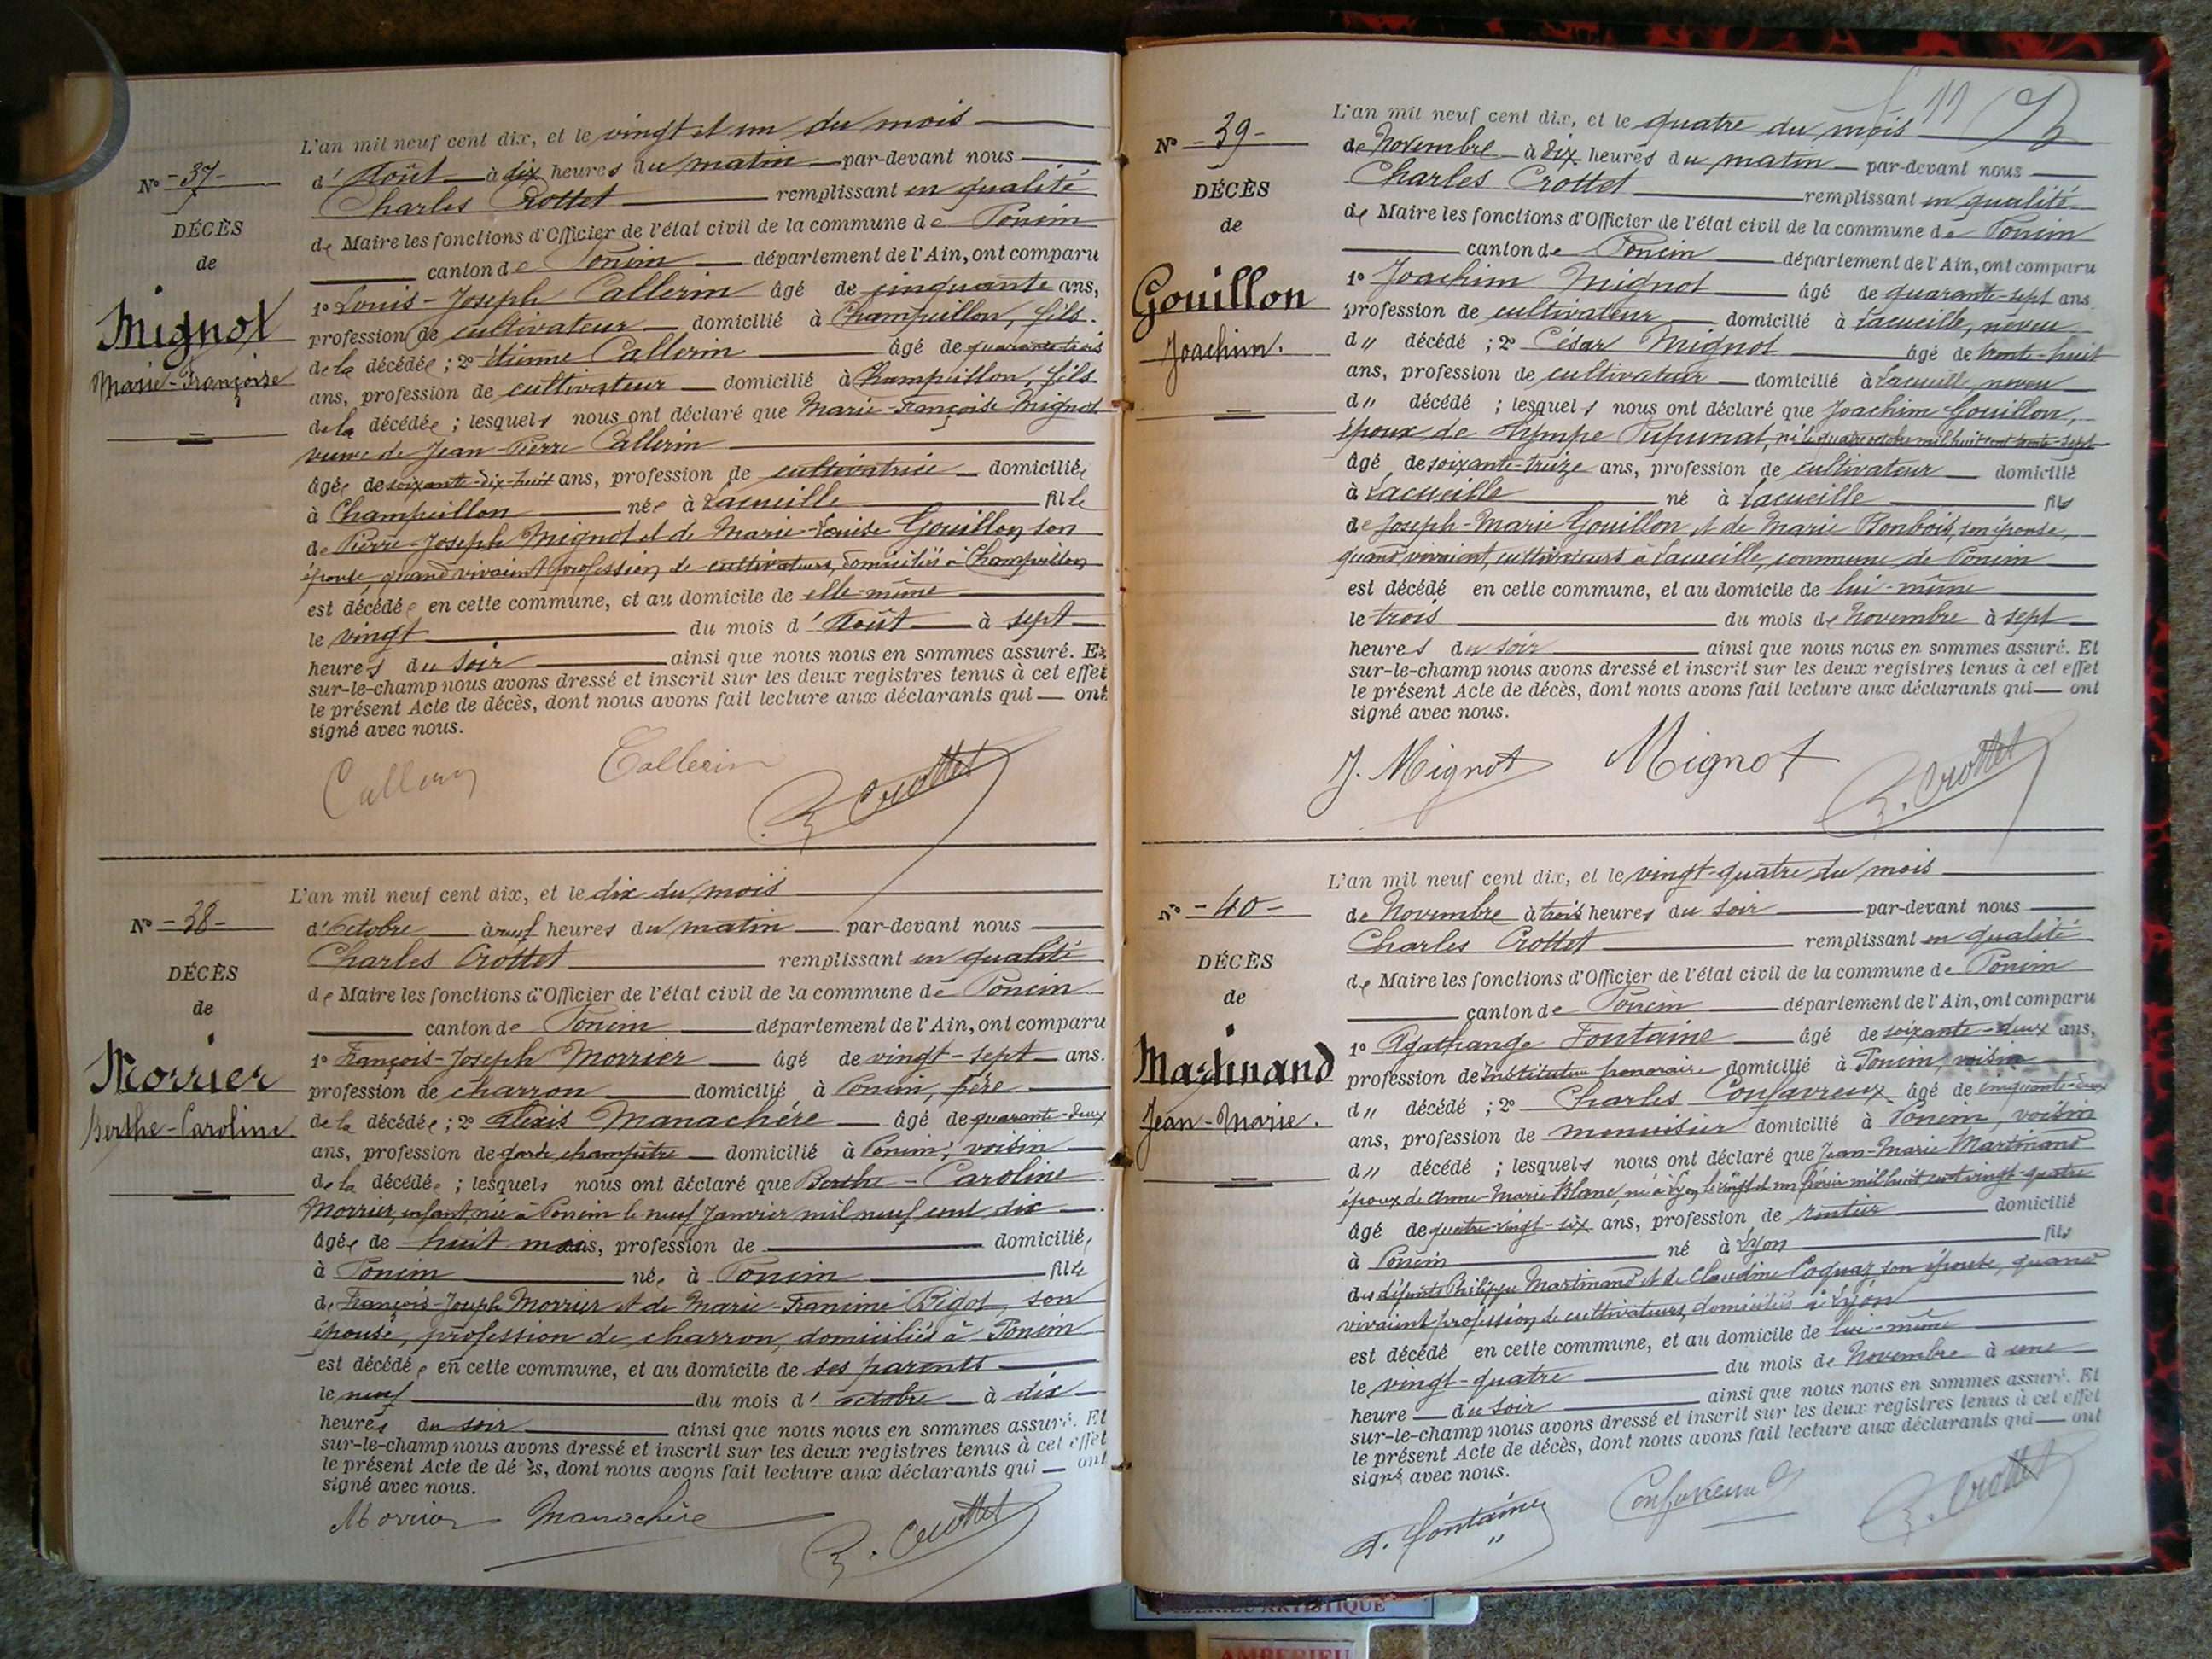 L'an mil neuf cent dix, et le vingt et un du mois
N° -37-
d' Août à dix heures du matin par-devant nous
Charles Crottet remplissant en qualité
DÉCÈS
de Maire les fonctions d'Officier de l'état civil de la commune de Poncin
de
canton de Poncin département de l'Ain, ont comparu
1° Louis-Joseph Callerin âgé de cinquante ans,
Mignot
profession de cultivateur domicilié à Champeillon, fils
de la décédée ; 2° Etienne Callerin âgé de quarante trois
Marie-Françoise
ans, profession de cultivateur domicilié à Champeillon, fils
de la décédée ; lesquels nous ont déclaré que Marie-Françoise Mignot
veuve de Jean-Pierre Callerin
âgée de soixante-dix-huit ans, profession de cultivatrice domiciliée
à Champeillon née à Lacueille fille
de Pierre-Joseph Mignot et de Marie-Louise Gouillon son
épouse, quand vivaient profession de cultivateurs, domiciliés à Champeillon
est décédée en cette commune, et au domicile de elle-même
le vingt du mois d' Août à sept
heures du soir ainsi que nous nous en sommes assuré. Et
sur-le-champ nous avons dressé et inscrit sur les deux registres tenus à cet effet
le présent Acte de décès, dont nous avons fait lecture aux déclarants qui ont
signé avec nous.
Callerin Callerin C. Crottet
L'an mil neuf cent dix, et le dix du mois
N° -38-
d'octobre à neuf heures du matin par-devant nous
Charles Crottet remplissant en qualité
DÉCÈS
de Maire les fonctions d'Officier de l'état civil de la commune de Poncin
de
canton de Poncin département de l'Ain, ont comparu
1° François-Joseph Morrier âgé de vingt-sept ans.
Morrier
profession de charron domicilié à Poncin, père
Berthe-Caroline
de la décédée ; 2° Alexis Manachère âgé de quarante-deux
ans, profession de garde champêtre domicilié à Poncin, voisin
de la décédée ; lesquels nous ont déclaré que Berthe-Caroline
Morrier, enfant, née à Poncin le neuf Janvier mil neuf cent dix
âgée de huit mois, profession de domiciliée
à Poncin née à Poncin fille
de François-Joseph Morrier et de Marie-Francine Rigot, son
épouse, profession de charron, domiciliés à Poncin
est décédée en cette commune, et au domicile de ses parents
le neuf du mois d' octobre à dix
heures du soir ainsi que nous nous en sommes assuré. Et
sur-le-champ nous avons dressé et inscrit sur les deux registres tenus à cet effet
le présent Acte de décès, dont nous avons fait lecture aux déclarants qui ont
signé avec nous.
Morrier Manachère C. Crottet
11
L'an mil neuf cent dix, et le quatre du mois
N° -39-
de Novembre à dix heures du matin par-devant nous
Charles Crottet remplissant en qualité
DÉCÈS
de Maire les fonctions d'Officier de l'état civil de la commune de Poncin
de
canton de Poncin département de l'Ain, ont comparu
1° Joachim Mignot âgé de quarante-sept ans
Gouillon
profession de cultivateur domicilié à Lacueille, neveu
Joachim.
d" décédé ; 2° César Mignot âgé de trente-huit
ans, profession de cultivateur domicilié à Lacueille, neveu
d" décédé ; lesquels nous ont déclaré que Joachim Gouillon,
époux de Olympe Pupunat, né le quatre octobre mil huit cent trente-sept
âgé de soixante-treize ans, profession de cultivateur domicilié
à Lacueille né à Lacueille fils
de Joseph-Marie Gouillon et de Marie Bonbois, son épouse,
quand vivaient, cultivateurs à Lacueille, commune de Poncin
est décédé en cette commune, et au domicile de lui-même
le trois du mois de Novembre à sept
heures du soir ainsi que nous nous en sommes assuré. Et
sur-le-champ nous avons dressé et inscrit sur les deux registres tenus à cet effet
le présent Acte de décès, dont nous avons fait lecture aux déclarants qui ont
signé avec nous.
J. Mignot Mignot C. Crottet
L'an mil neuf cent dix, et le vingt-quatre du mois
N° -40-
de Novembre à trois heures du soir par-devant nous
Charles Crottet remplissant en qualité
DÉCÈS
de Maire les fonctions d'Officier de l'état civil de la commune de Poncin
de
canton de Poncin département de l'Ain, ont comparu
1° Agathange Fontaine âgé de soixante-deux ans,
Martinand
profession de Instituteur honoraire domicilié à Poncin, voisin
Jean-Marie.
d" décédé ; 2° Charles Confavreux âgé de cinquante-deux
ans, profession de menuisier domicilié à Poncin, voisin
d" décédé ; lesquels nous ont déclaré que Jean-Marie Martinand
époux de Anne-Marie Blanc, né à Lyon, le vingt et un février mil huit cent vingt-quatre
âgé de quatre-vingt-six ans, profession de rentier domicilié
à Poncin né à Lyon fils
des défunts Philippe Martinand et de Claudine Coquaz son épouse, quand
vivaient profession de cultivateurs, domiciliés à Lyon
est décédé en cette commune, et au domicile de lui-même
le vingt-quatre du mois de Novembre à une
heure du soir ainsi que nous nous en sommes assuré. Et
sur-le-champ nous avons dressé et inscrit sur les deux registres tenus à cet effet
le présent Acte de décès, dont nous avons fait lecture aux déclarants qui ont
signé avec nous.
A. Fontaine Confavreux C. Crottet
ARTISTIQUE
AMBERIEU